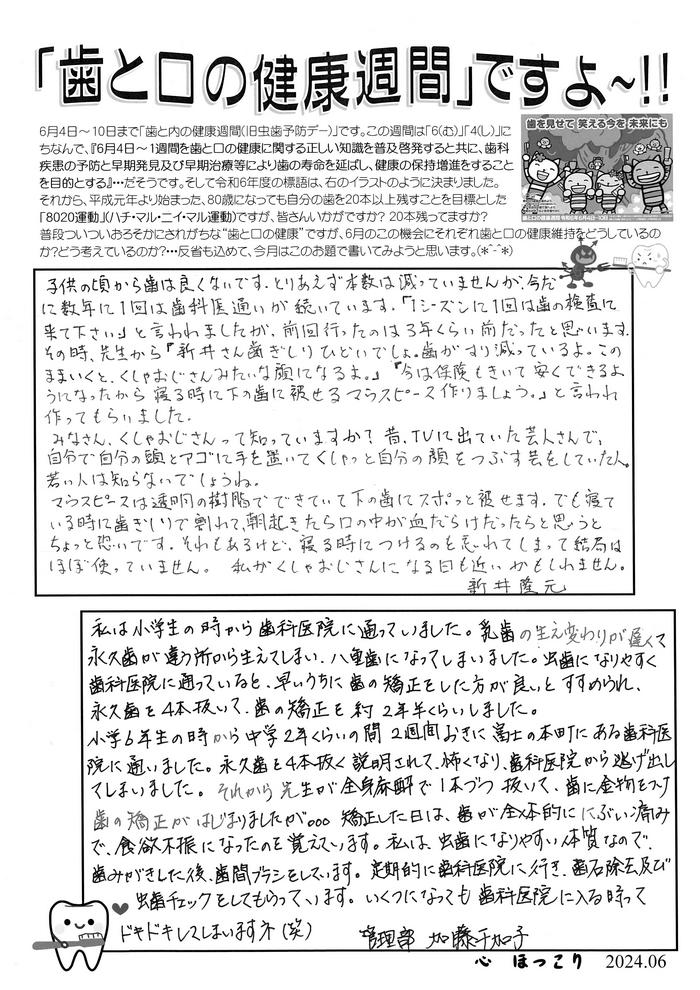 「歯と口の健康週間」ですよ～!!
6月4日～10日まで「歯と内の健康週間(旧虫歯予防デー)」です。この週間は「6(む)」「4(し)」に
ちなんで、『6月4日～1週間を歯と口の健康に関する正しい知識を普及啓発すると共に、歯科
疾患の予防と早期発見及び早期治療等により歯の寿命を延ばし、健康の保持増進をすること
を目的とする』…だそうです。そして令和6年度の標語は、右のイラストのように決まりました。
それから、平成元年より始まった、80歳になっても自分の歯を20本以上残すことを目標とした
「8020運動」(ハチ・マル・ニイ・マル運動)ですが、皆さんいかがですか? 20本残ってますか?
普段ついついおろそかにされがちな“歯と口の健康”ですが、6月のこの機会にそれぞれ歯と口の健康維持をどうしているの
か?どう考えているのか?…反省も込めて、今月はこのお題で書いてみようと思います。(*^-^*)
歯を見せて 笑える今を 未来にも
子供の頃から歯は良くないです。とりあえず本数は減っていませんが、今だ
に数年に1回は歯科医通いが続いています。「1シーズンに1回は歯の検査に
来て下さい」と言われましたが、前回行ったのは3年くらい前だったと思います。
その時、先生から『新井さん歯ぎしりひどいでしょ。歯がすり減っているよ。この
ままいくと、くしゃおじさんみたいな顔になるよ。』『今は保険もきいて安くできるよ
うになったから寝る時に下の歯に被せるマウスピース作りましょう。』と言われ
作ってもらいました。
みなさん、くしゃおじさんって知っていますか? 昔、TVに出ていた芸人さんで、
自分で自分の頭とアゴに手を置いてくしゃっと自分の顔をつぶす芸をしていた人。
若い人は知らないでしょうね。
マウスピースは透明の樹脂でできていて下の歯にスポっと被せます。でも寝て
いる時に歯ぎしりで割れて、朝起きたら口の中が血だらけだったらと思うと
ちょっと恐いです。それもあるけど、寝る時につけるのを忘れてしまって結局は
ほぼ使っていません。 私がくしゃおじさんになる日も近いかもしれません。
新井隆元
私は小学生の時から歯科医院に通っていました。乳歯の生え変わりが遅くて
永久歯が違う所から生えてしまい、八重歯になってしまいました。虫歯になりやすく
歯科医院に通っていると、早いうちに歯の矯正をした方が良いとすすめられ、
永久歯を4本抜いて、歯の矯正を約2年半くらいしました。
小学6年生の時から中学2年くらいの間 2週間おきに富士の本町にある歯科医
院に通いました。永久歯を4本抜く説明されて、怖くなり、歯科医院から逃げ出し
てしまいました。それから先生が全身麻酔で1本づつ抜いて、歯に金物をつけ
歯の矯正がはじまりましたが。。。矯正した日は、歯が全体的ににぶい痛み
で、食欲不振になったのを覚えています。私は、虫歯になりやすい体質なので、
歯みがきした後、歯間ブラシをしています。定期的に歯科医院に行き、歯石除去及び
虫歯チェックをしてもらっています。いくつになっても歯科医院に入る時って
ドキドキしてしまいますネ(笑)
管理部 加藤千加子
心 ほっこり 2024.06